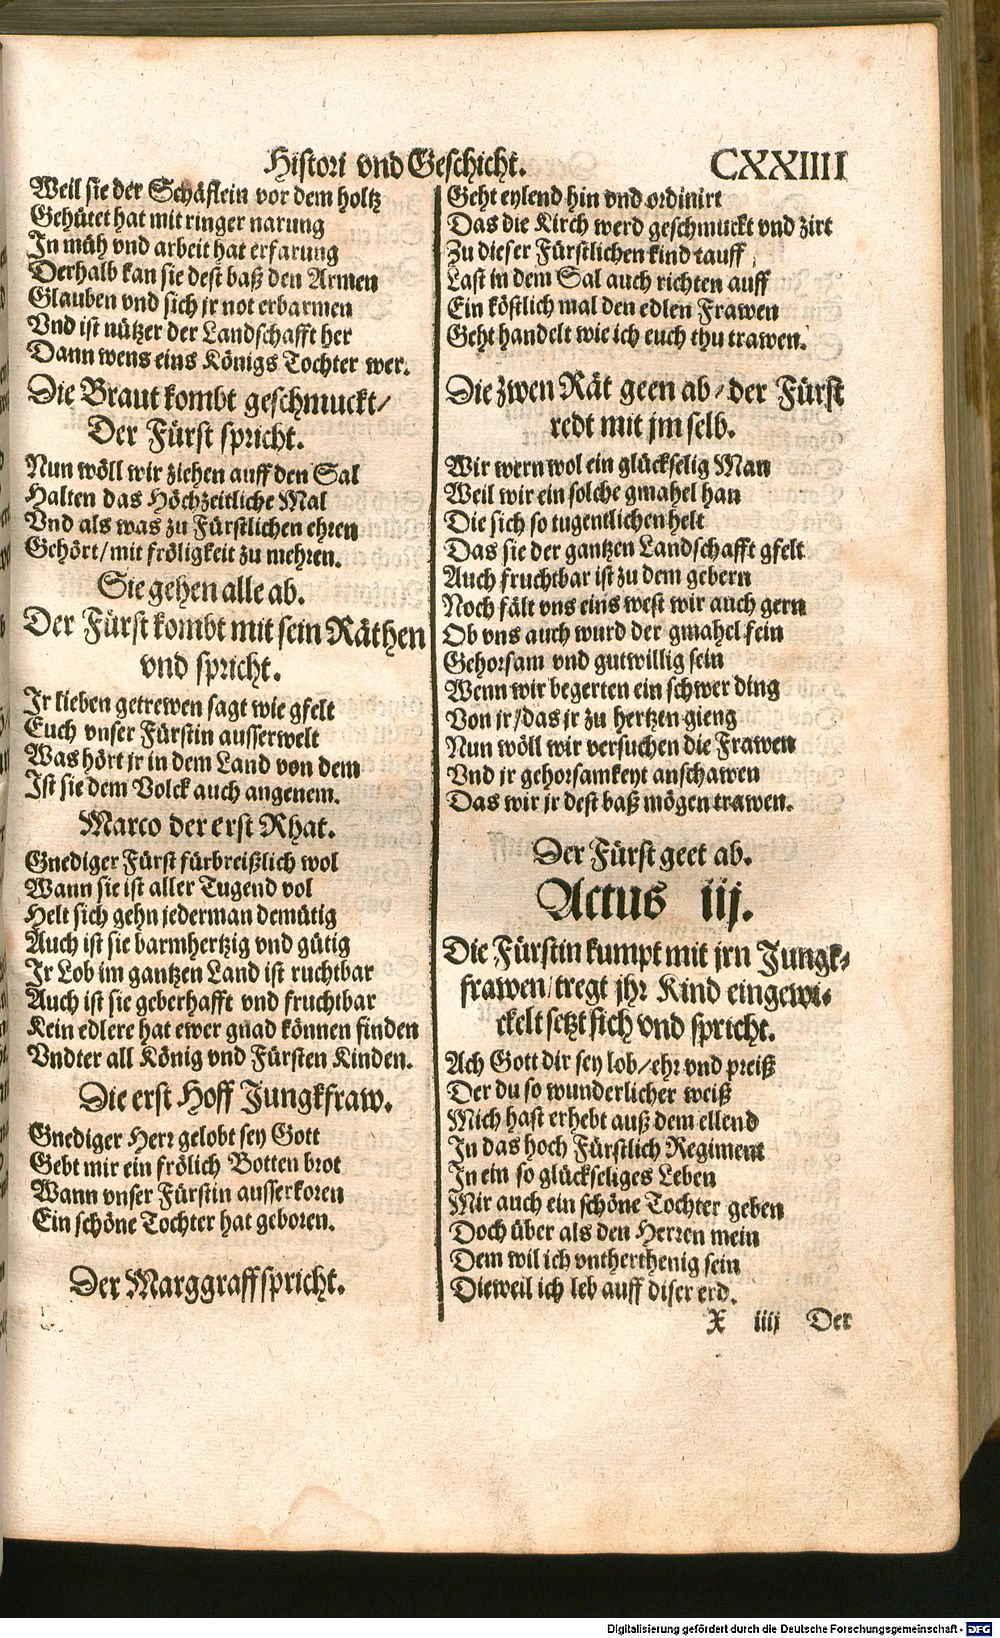 Histori vnd Geschicht. CXXIIII
Weil sie der Schäflein vor dem holtz
Gehütet hat mit ringer narung
In müh vnd arbeit hat erfarung
Derhalb kan sie dest baß den Armen
Glauben vnd sich jr not erbarmen
Vnd ist nützer der Landschafft her
Dann wens eins Königs Tochter wer.
Die Braut kombt geschmuckt/
Der Fürst spricht.
Nun wöll wir ziehen auff den Sal
Halten das Höchzeitliche Mal
Vnd als was zu Fürstlichen ehren
Gehört/mit fröligkeit zu mehren.
Sie gehen alle ab.
Der Fürst kombt mit sein Räthen
vnd spricht.
Ir lieben getrewen sagt wie gfelt
Euch vnser Fürstin ausserwelt
Was hört jr in dem Land von dem
Ist sie dem Volck auch angenem.
Marco der erst Rhat.
Gnediger Fürst fürbreißlich wol
Wann sie ist aller Tugend vol
Helt sich gehn jederman demütig
Auch ist sie barmhertzig vnd gütig
Ir Lob im gantzen Land ist ruchtbar
Auch ist sie geberhafft vnd fruchtbar
Kein edlere hat ewer gnad können finden
Vndter all König vnd Fürsten Kinden.
Die erst Hoff Jungkfraw.
Gnediger Herr gelobt sey Gott
Gebt mir ein frölich Botten brot
Wann vnser Fürstin ausserkoren
Ein schöne Tochter hat geboren.
Der Marggraff spricht.
Geht eylend hin vnd ordinirt
Das die Kirch werd geschmuckt vnd zirt
Zu dieser Fürstlichen kind tauff
Last in dem Sal auch richten auff
Ein köstlich mal den edlen Frawen
Geht handelt wie ich euch thu trawen.
Die zwen Rät geen ab/der Fürst
redt mit jm selb.
Wir wern wol ein glückselig Man
Weil wir ein solche gmahel han
Die sich so tugentlichen helt
Das sie der gantzen Landschafft gfelt
Auch fruchtbar ist zu dem gebern
Noch fält vns eins west wir auch gern
Ob vns auch wurd der gmahel fein
Gehorsam vnd gutwillig sein
Wenn wir begerten ein schwer ding
Von jr/das jr zu hertzen gieng
Nun wöll wir versuchen die Frawen
Vnd jr gehorsamkeyt anschawen
Das wir jr dest baß mögen trawen.
Der Fürst geet ab.
Actus iij.
Die Fürstin kumpt mit jrn Jungk-
frawen/tregt jhr Kind eingewi-
ckelt setzt sich vnd spricht.
Ach Gott dir sey lob/ehr vnd preiß
Der du so wunderlicher weiß
Mich hast erhebt auß dem ellend
In das hoch Fürstlich Regiment
In ein so glückseliges Leben
Mir auch ein schöne Tochter geben
Doch über als den Herren mein
Dem wil ich vntherthenig sein
Dieweil ich leb auff diser erd.
X iiij Der
Digitalisierung gefördert durch die Deutsche Forschungsgemeinschaft - DFG